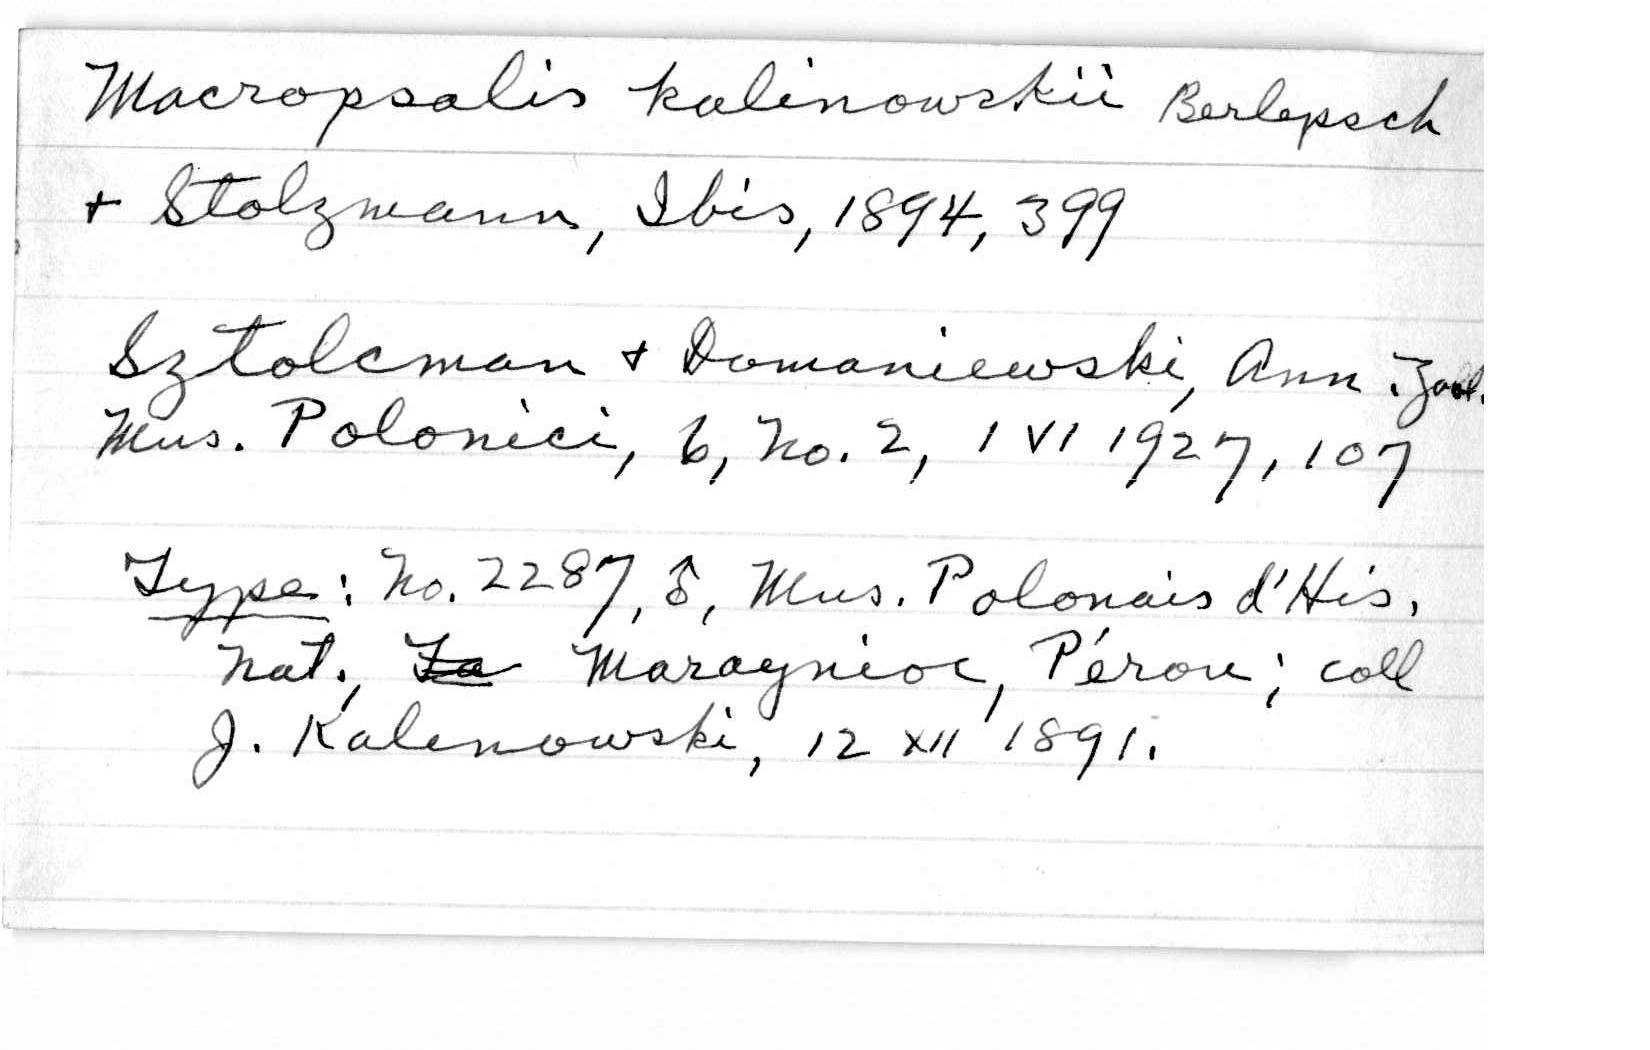 Macropsalis kalinowskii Berlepsch
+ Stolzmann, Ibis, 1894, 399
Sztolcman + Domaniewski, Ann. Zool.
Mus. Polonici, 6, No. 2, 1 VI 1927, 107
Type: No. 2287, ♂, Mus. Polonais d'His.
Nat., La Maraynioc, Pérou; coll
J. Kalinowski, 12 XII 1891.